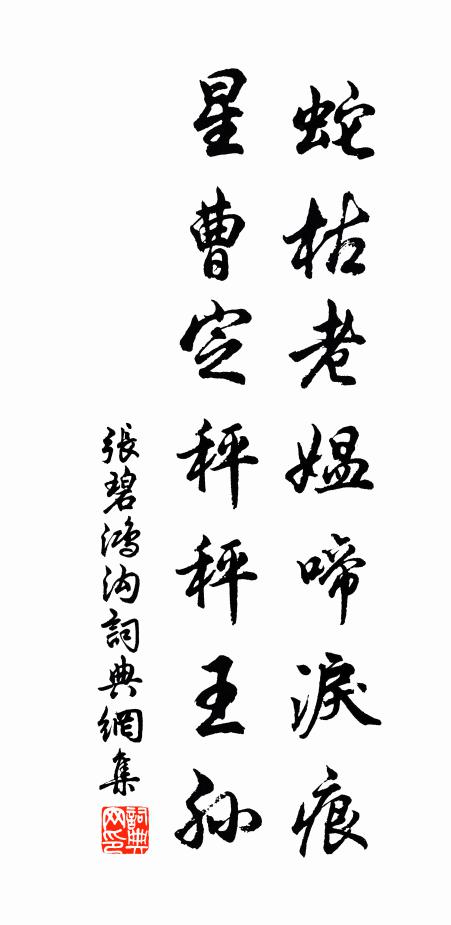 蛇枯老媪啼淚痕
星曹定秤秤王孙
張碧鴻沟詞典網集
詞典网印